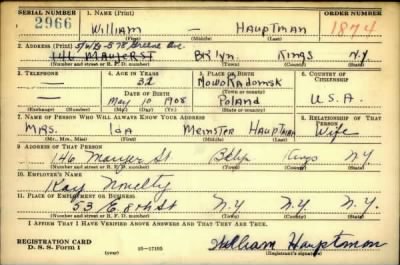 SERIAL NUMBER 1. NAME (Print) ORDER NUMBER
2966 William — Hauptman 1874
(First) (Middle) (Last)
2. ADDRESS (Print)
146 Maujer St Bklyn. Kings N.Y.
(Number and street or R. F. D. number) (Town) (County) (State)
3. TELEPHONE 4. AGE IN YEARS 5. PLACE OF BIRTH 6. COUNTRY OF CITIZENSHIP
— 32 Nowo Radomsk
DATE OF BIRTH (Town or county)
— May 10 1908 Poland U.S.A.
(Exchange) (Number) (Mo.) (Day) (Yr.) (State or country)
7. NAME OF PERSON WHO WILL ALWAYS KNOW YOUR ADDRESS 8. RELATIONSHIP OF THAT PERSON
Mrs. Ida Meinster Hauptman Wife
(Mr., Mrs., Miss) (First) (Middle) (Last)
9. ADDRESS OF THAT PERSON
146 Maujer St Bklyn Kings N.Y
(Number and street or R. F. D. number) (Town) (County) (State)
10. EMPLOYER'S NAME
Kay Novelty
11. PLACE OF EMPLOYMENT OR BUSINESS
53 E. 8th St N.Y N.Y. N.Y.
(Number and street or R. F. D. number) (Town) (County) (State)
I AFFIRM THAT I HAVE VERIFIED ABOVE ANSWERS AND THAT THEY ARE TRUE.
REGISTRATION CARD
D. S. S. Form 1 (over) 16—17105 William Hauptman
(Registrant's signature)